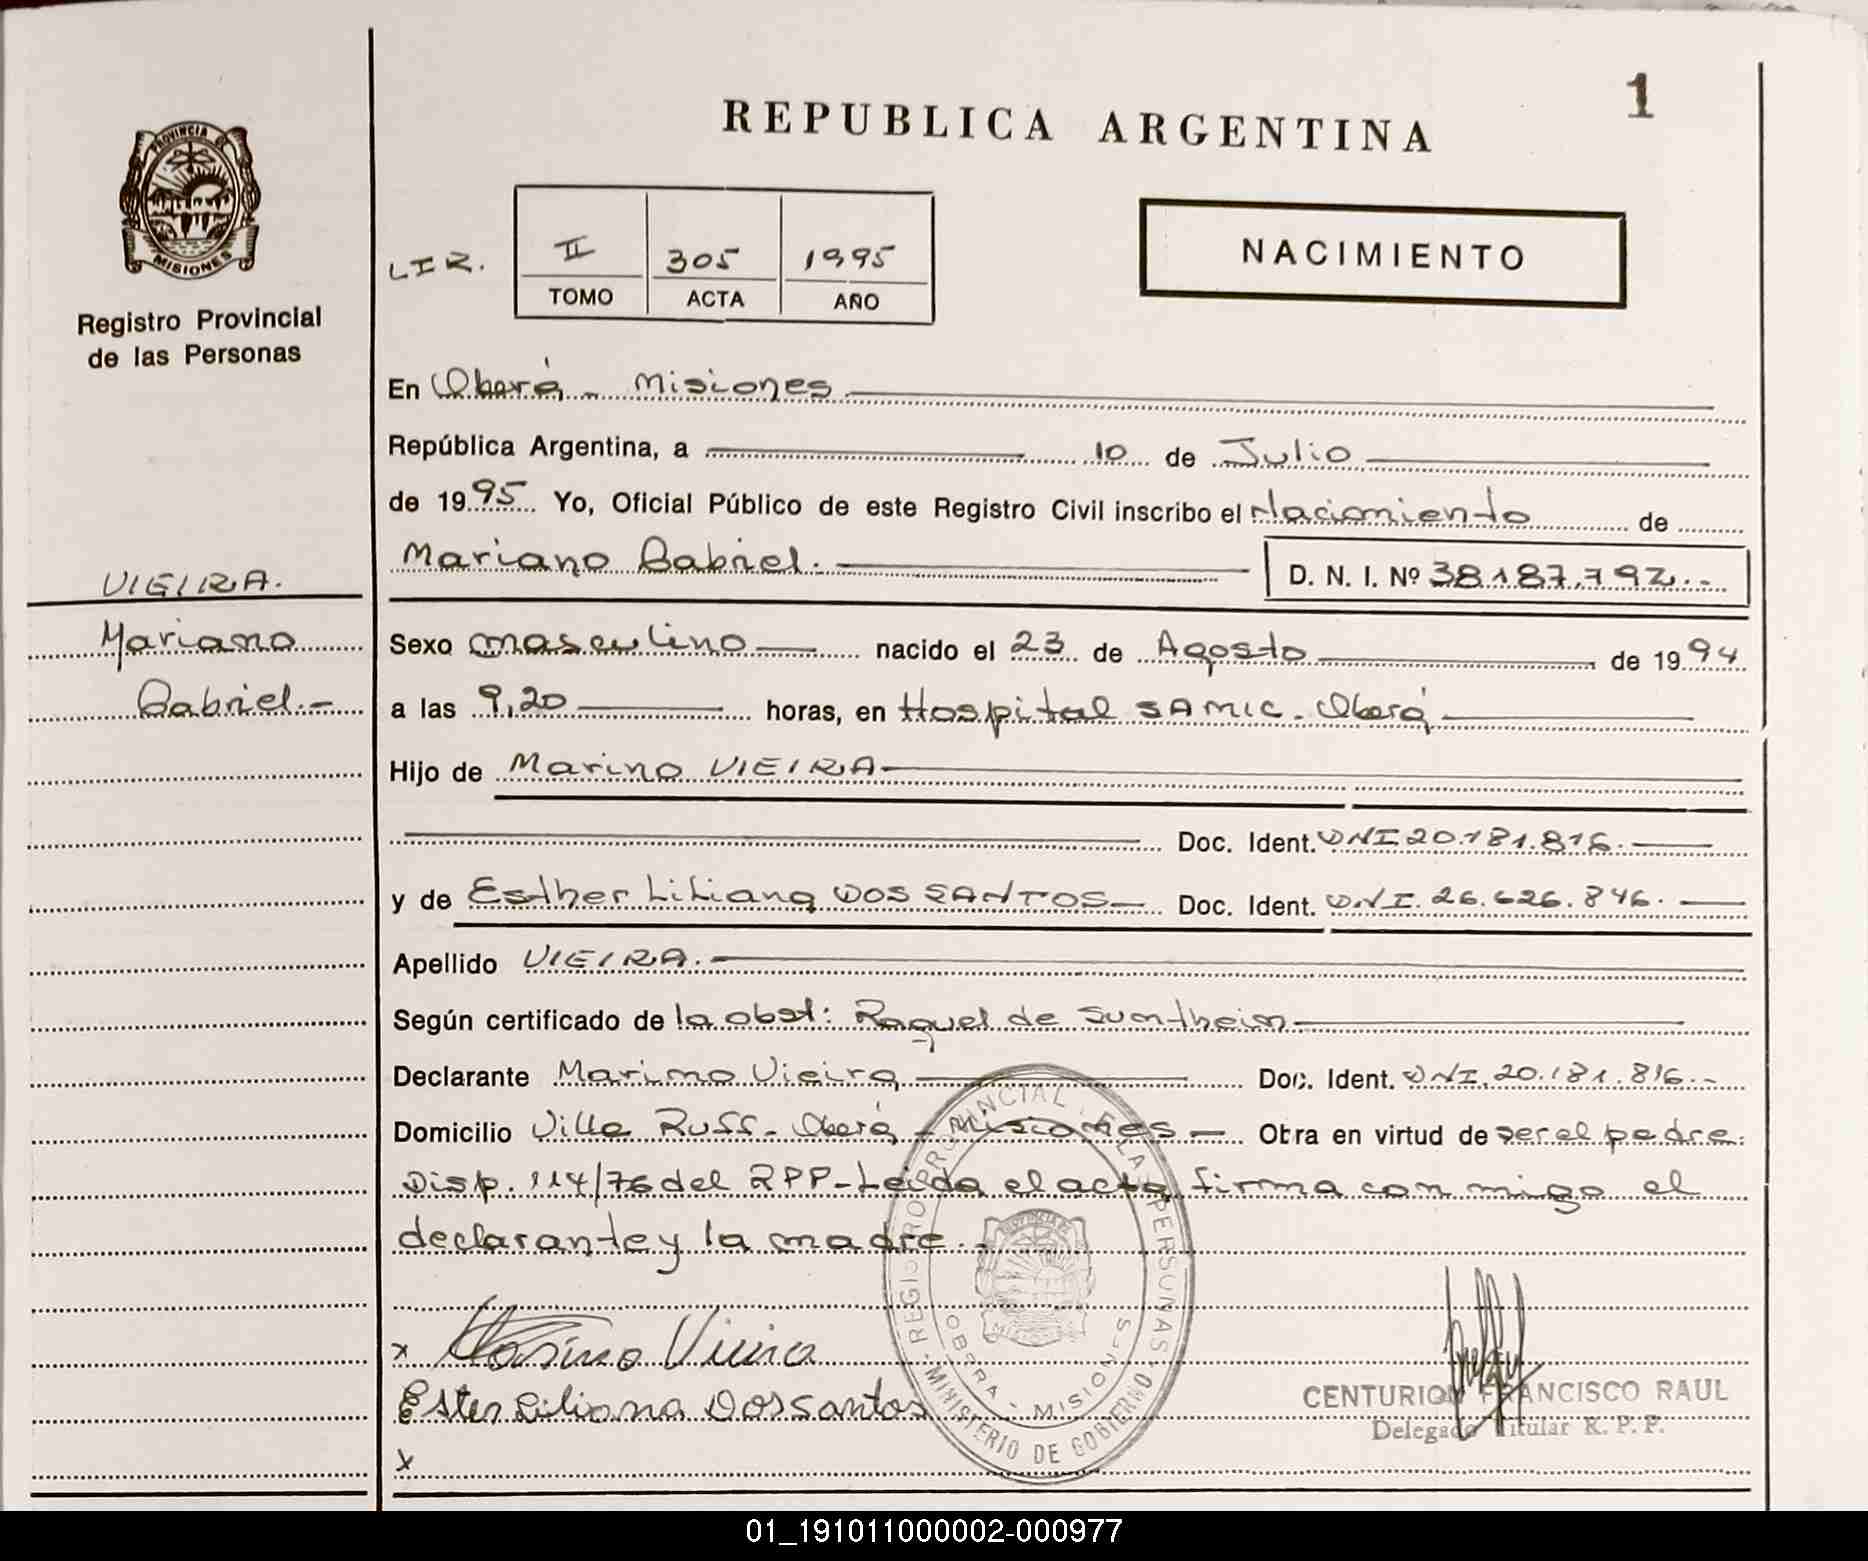 1
REPUBLICA ARGENTINA
PROVINCIA DE
MISIONES
Registro Provincial
de las Personas
LIR.
II 305 1995
TOMO ACTA AÑO
NACIMIENTO
En Oberá - Misiones
República Argentina, a 10 de Julio
de 1995 Yo, Oficial Público de este Registro Civil inscribo el Nacimiento de
Mariano Gabriel. D. N. I. Nº 38.187.792.-
VIEIRA.
Mariano
Gabriel.-
Sexo masculino nacido el 23 de Agosto de 1994
a las 9,20 horas, en Hospital SAMIC - Oberá
Hijo de Marino VIEIRA
Doc. Ident. DNI 20.181.816.
y de Esther Liliana DOS SANTOS Doc. Ident. DNI. 26.626.846.
Apellido VIEIRA.
Según certificado de la obst: Raquel de Sumtheim
Declarante Marino Vieira Doc. Ident. DNI. 20.181.816.-
Domicilio Villa Russ - Oberá - Misiones - Obra en virtud de ser el padre.
Disp. 114/76 del RPP - Leída el acta firma con migo el
declarante y la madre.-
x Marino Vieira
Ester Liliana Dos santos
x
REGISTRO PROVINCIAL DE LAS PERSONAS
MINISTERIO DE GOBIERNO
OBERA - MISIONES
CENTURION FRANCISCO RAUL
Delegado Titular R. P. P.
01_191011000002-000977